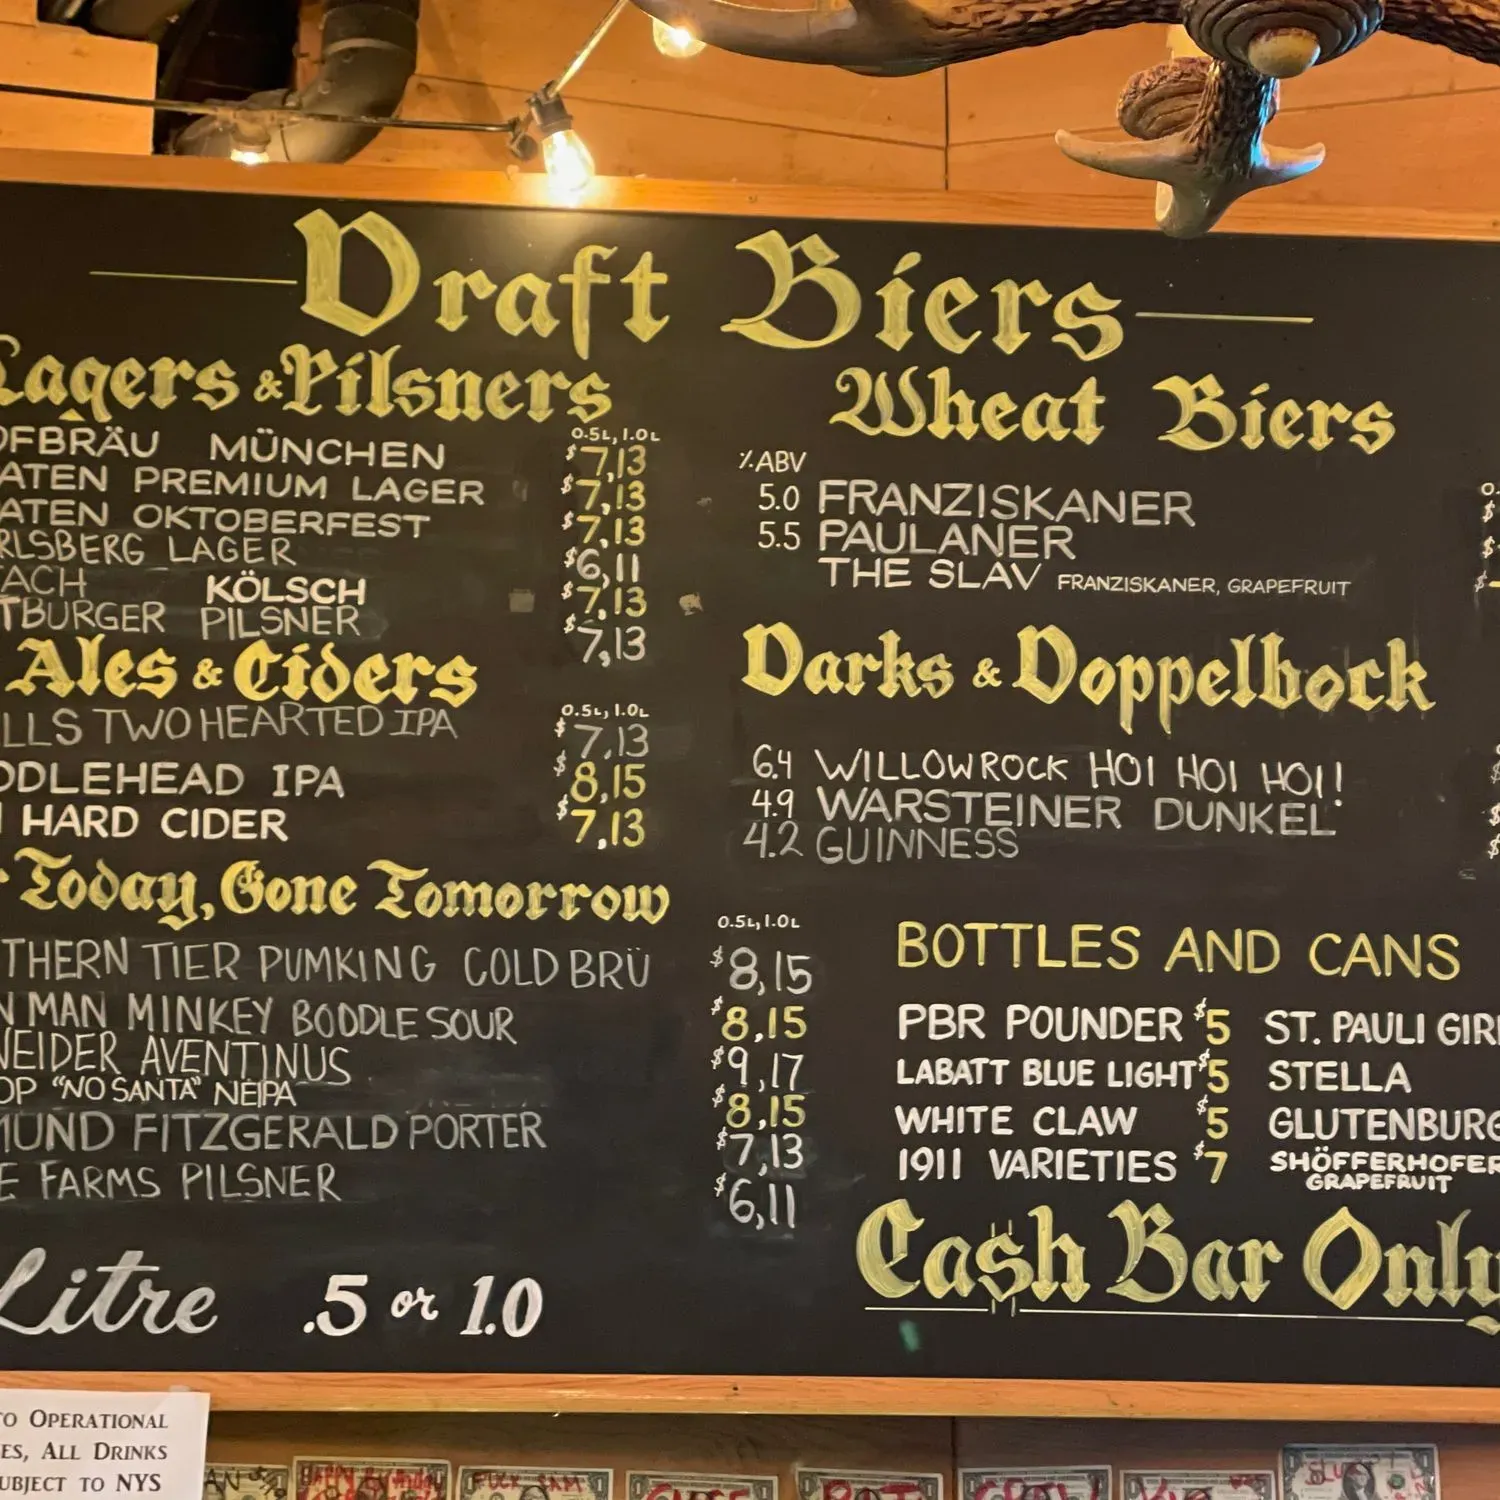 Draft Biers
Lagers & Pilsners
0.5L, 1.0L
OFBRÄU MÜNCHEN $7,13
ATEN PREMIUM LAGER $7,13
ATEN OKTOBERFEST $7,13
RLSBERG LAGER $6,11
ACH KÖLSCH $7,13
TBURGER PILSNER $7,13
Ales & Ciders
0.5L, 1.0L
LLS TWO HEARTED IPA $7,13
DDLEHEAD IPA $8,15
HARD CIDER $7,13
Today, Gone Tomorrow
0.5L, 1.0L
THERN TIER PUMKING COLD BRÜ $8,15
N MAN MINKEY BODDLE SOUR $8,15
NEIDER AVENTINUS $9,17
OP "NO SANTA" NEIPA $8,15
MUND FITZGERALD PORTER $7,13
E FARMS PILSNER $6,11
Litre .5 or 1.0
Wheat Biers
%ABV
5.0 FRANZISKANER
5.5 PAULANER
THE SLAV FRANZISKANER, GRAPEFRUIT
Darks & Doppelbock
6.4 WILLOWROCK HOI HOI HOI!
4.9 WARSTEINER DUNKEL
4.2 GUINNESS
BOTTLES AND CANS
PBR POUNDER $5 ST. PAULI GIR
LABATT BLUE LIGHT $5 STELLA
WHITE CLAW $5 GLUTENBURG
1911 VARIETIES $7 SHÖFFERHOFER
GRAPEFRUIT
Ca$h Bar Only
TO OPERATIONAL
ES, ALL DRINKS
UBJECT TO NYS